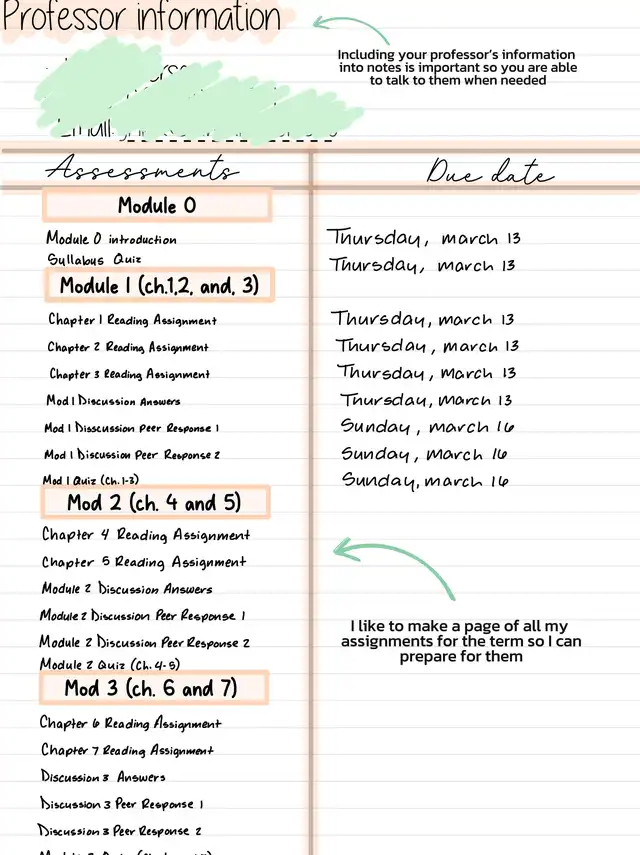 Professor information
Including your professor's information
into notes is important so you are able
to talk to them when needed
Email:
Assessments
Due date
Module 0
Module 0 introduction
Thursday, march 13
Syllabus Quiz
Thursday, march 13
Module 1 (ch.1,2, and, 3)
Chapter 1 Reading Assignment
Thursday, march 13
Chapter 2 Reading Assignment
Thursday, march 13
Chapter 3 Reading Assignment
Thursday, march 13
Mod 1 Discussion Answers
Thursday, march 13
Mod 1 Disscussion Peer Response 1
Sunday, march 16
Mod 1 Discussion Peer Response 2
Sunday, march 16
Mod 1 Quiz (Ch.1-3)
Sunday, march 16
Mod 2 (ch. 4 and 5)
Chapter 4 Reading Assignment
Chapter 5 Reading Assignment
Module 2 Discussion Answers
Module 2 Discussion Peer Response 1
Module 2 Discussion Peer Response 2
Module 2 Quiz (Ch. 4-5)
I like to make a page of all my
assignments for the term so I can
prepare for them
Mod 3 (ch. 6 and 7)
Chapter 6 Reading Assignment
Chapter 7 Reading Assignment
Discussion 3 Answers
Discussion 3 Peer Response 1
Discussion 3 Peer Response 2